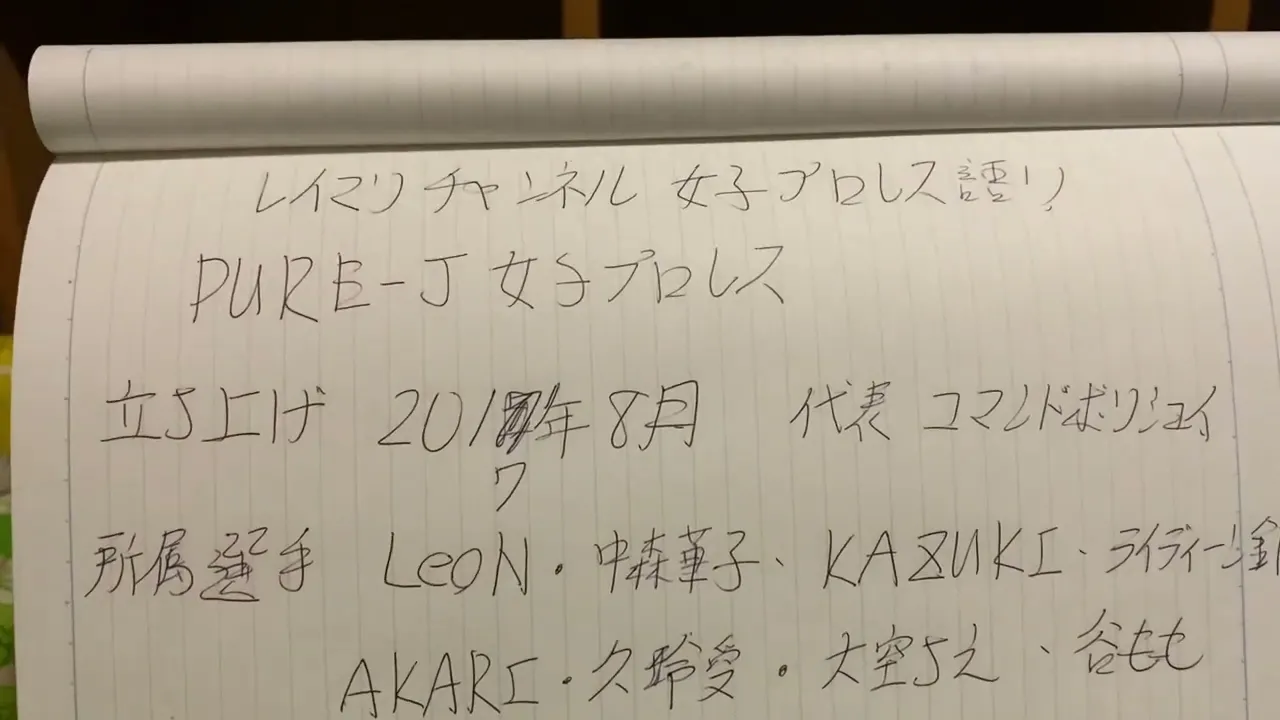 レイマリチャンネル 女子プロレス語り
PURE-J 女子プロレス
立ち上げ 2017年8月 代表 コマンドボリショイ
所属選手 LeoN・中森華子、KAZUKI・ライディーン
AKARI・久令愛・大空ちえ、谷もも